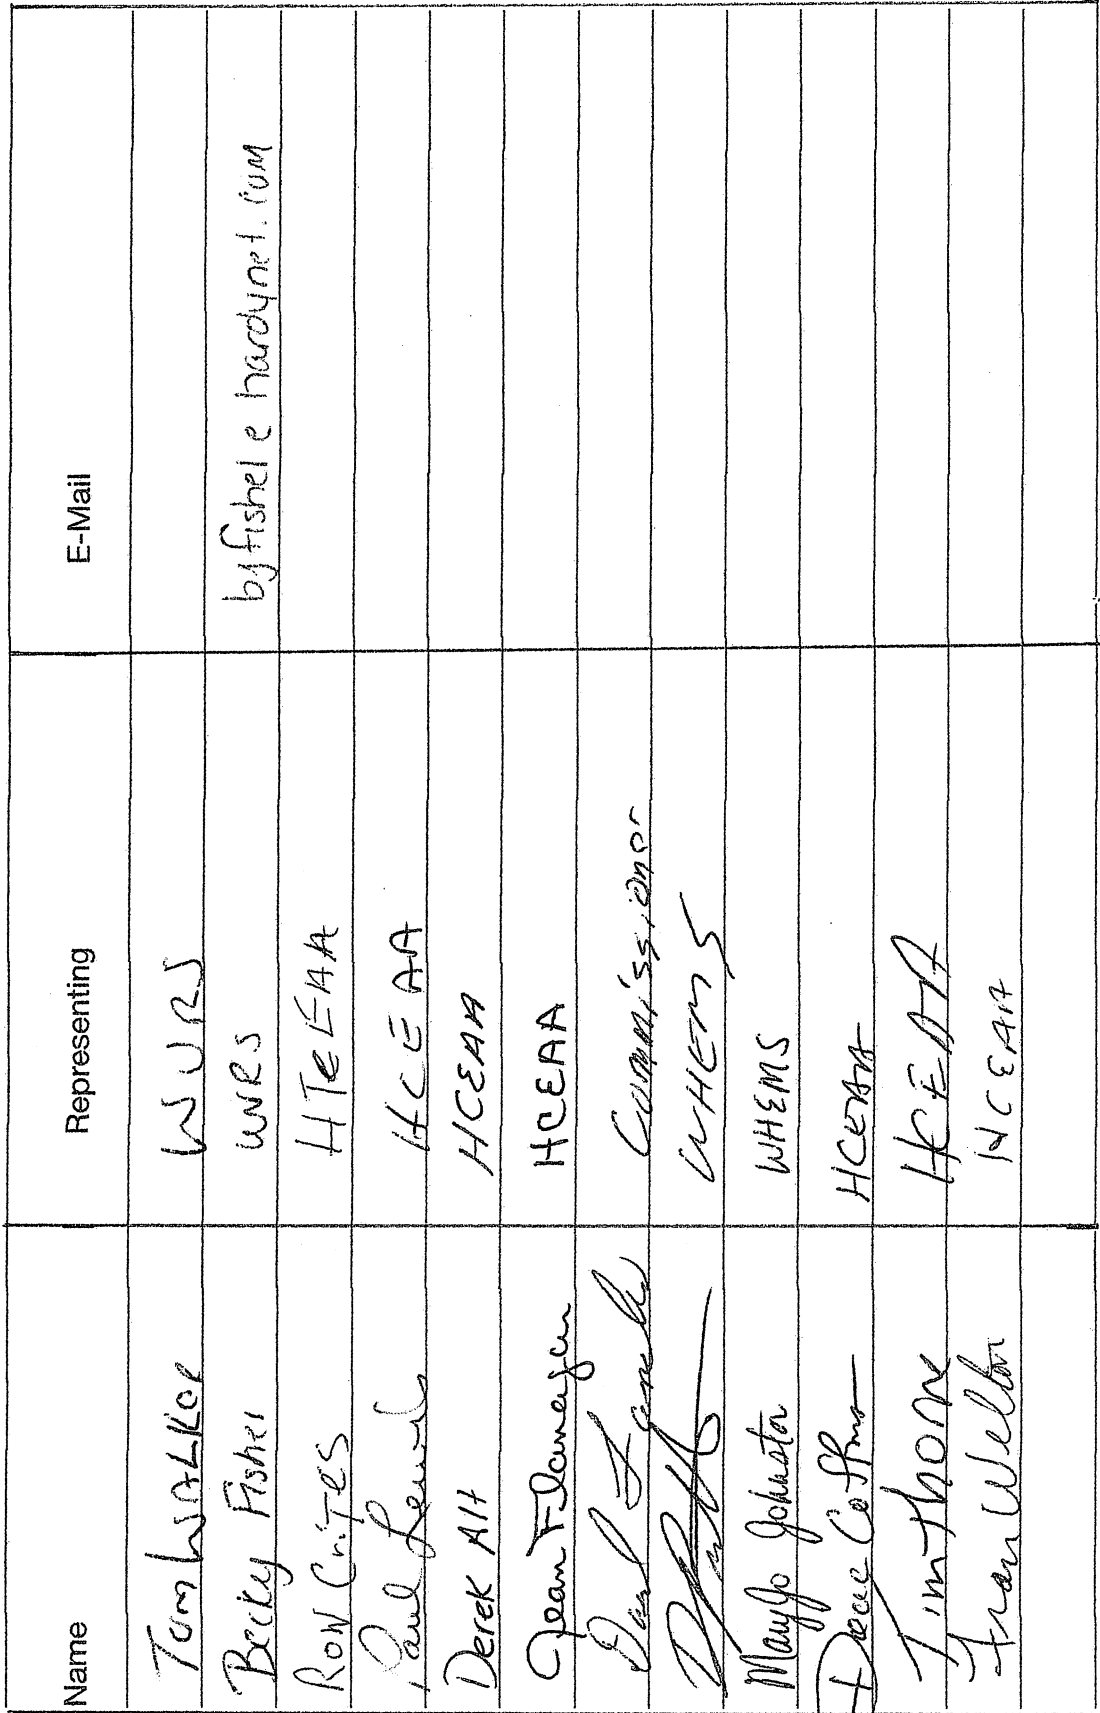 Name Representing E-Mail
Tom WALKER WURS
Becky Fisher WVRS bjfishel e hardynet.com
RON CriTes HTCEAA
Paul Lewis HCEAA
Derek Alt HCEAA
Jean Flanagan HCEAA
Commissioner
WHEMS
MaryJo Johnston WHEMS
HCEAA
Tim Thorne HCEAA
Fran Welton HCEAA